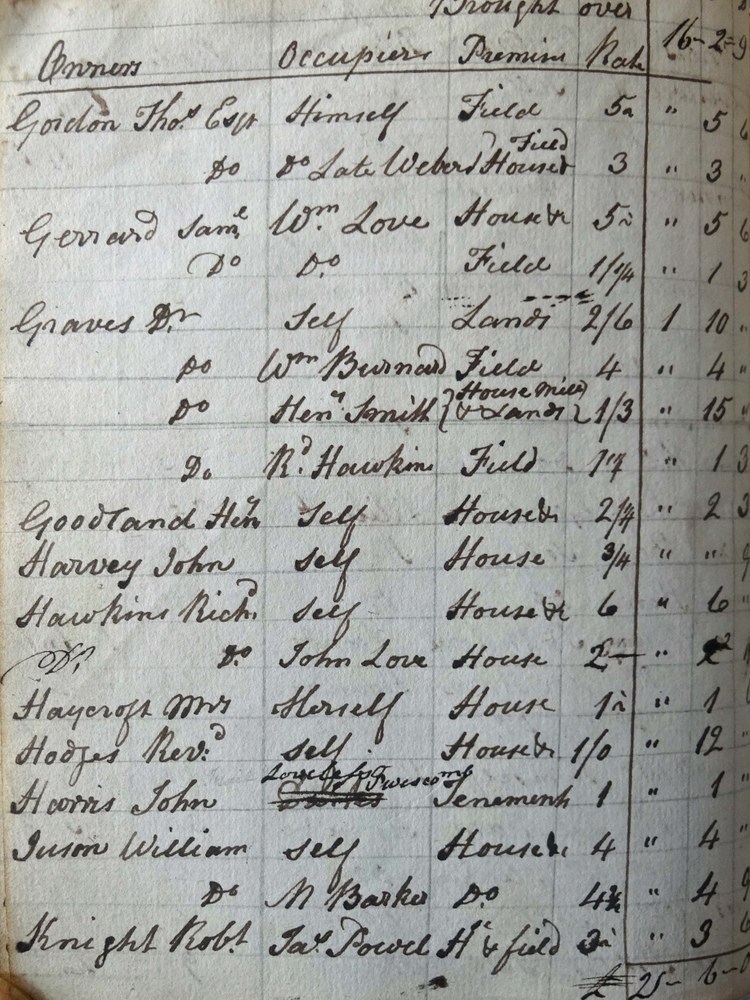 Brought over
Owners Occupiers Premises Rate 16-2-9
Gordon Thos. Esqr Himself Field 5 " 5 6
Field
Do Do Late Weberd House & 3 " 3 "
Gerrard Saml Wm. Love House & 5 " 5 6
Do Do Field 1/1/4 " 1 3
Graves Dr Self Lands 2/6 1 10 "
Do Wm Burnard Field 4 " 4 "
Do Heny Smith { House Mill & Lands } 1/3 " 15 "
Do Rd Hawkins Field " 1 3
Goodland Heny Self House & 2/1/4 " 2 3
Harvey John Self House 3/4 " " 9
Hawkins Richd Self House & 6 " 6 "
Do. Do John Love House 2 "
Haycroft Mrs Herself House 1 " 1
Hodges Revd. Self. House & 1/0 " 12 "
Harris John Tenement 1 " 1 "
Juson William Self House & 4 " 4 "
Do M Barker Do " 4
Knight Robt. Jas. Powel Hs & field 3 " 3 6
£ 25-6-